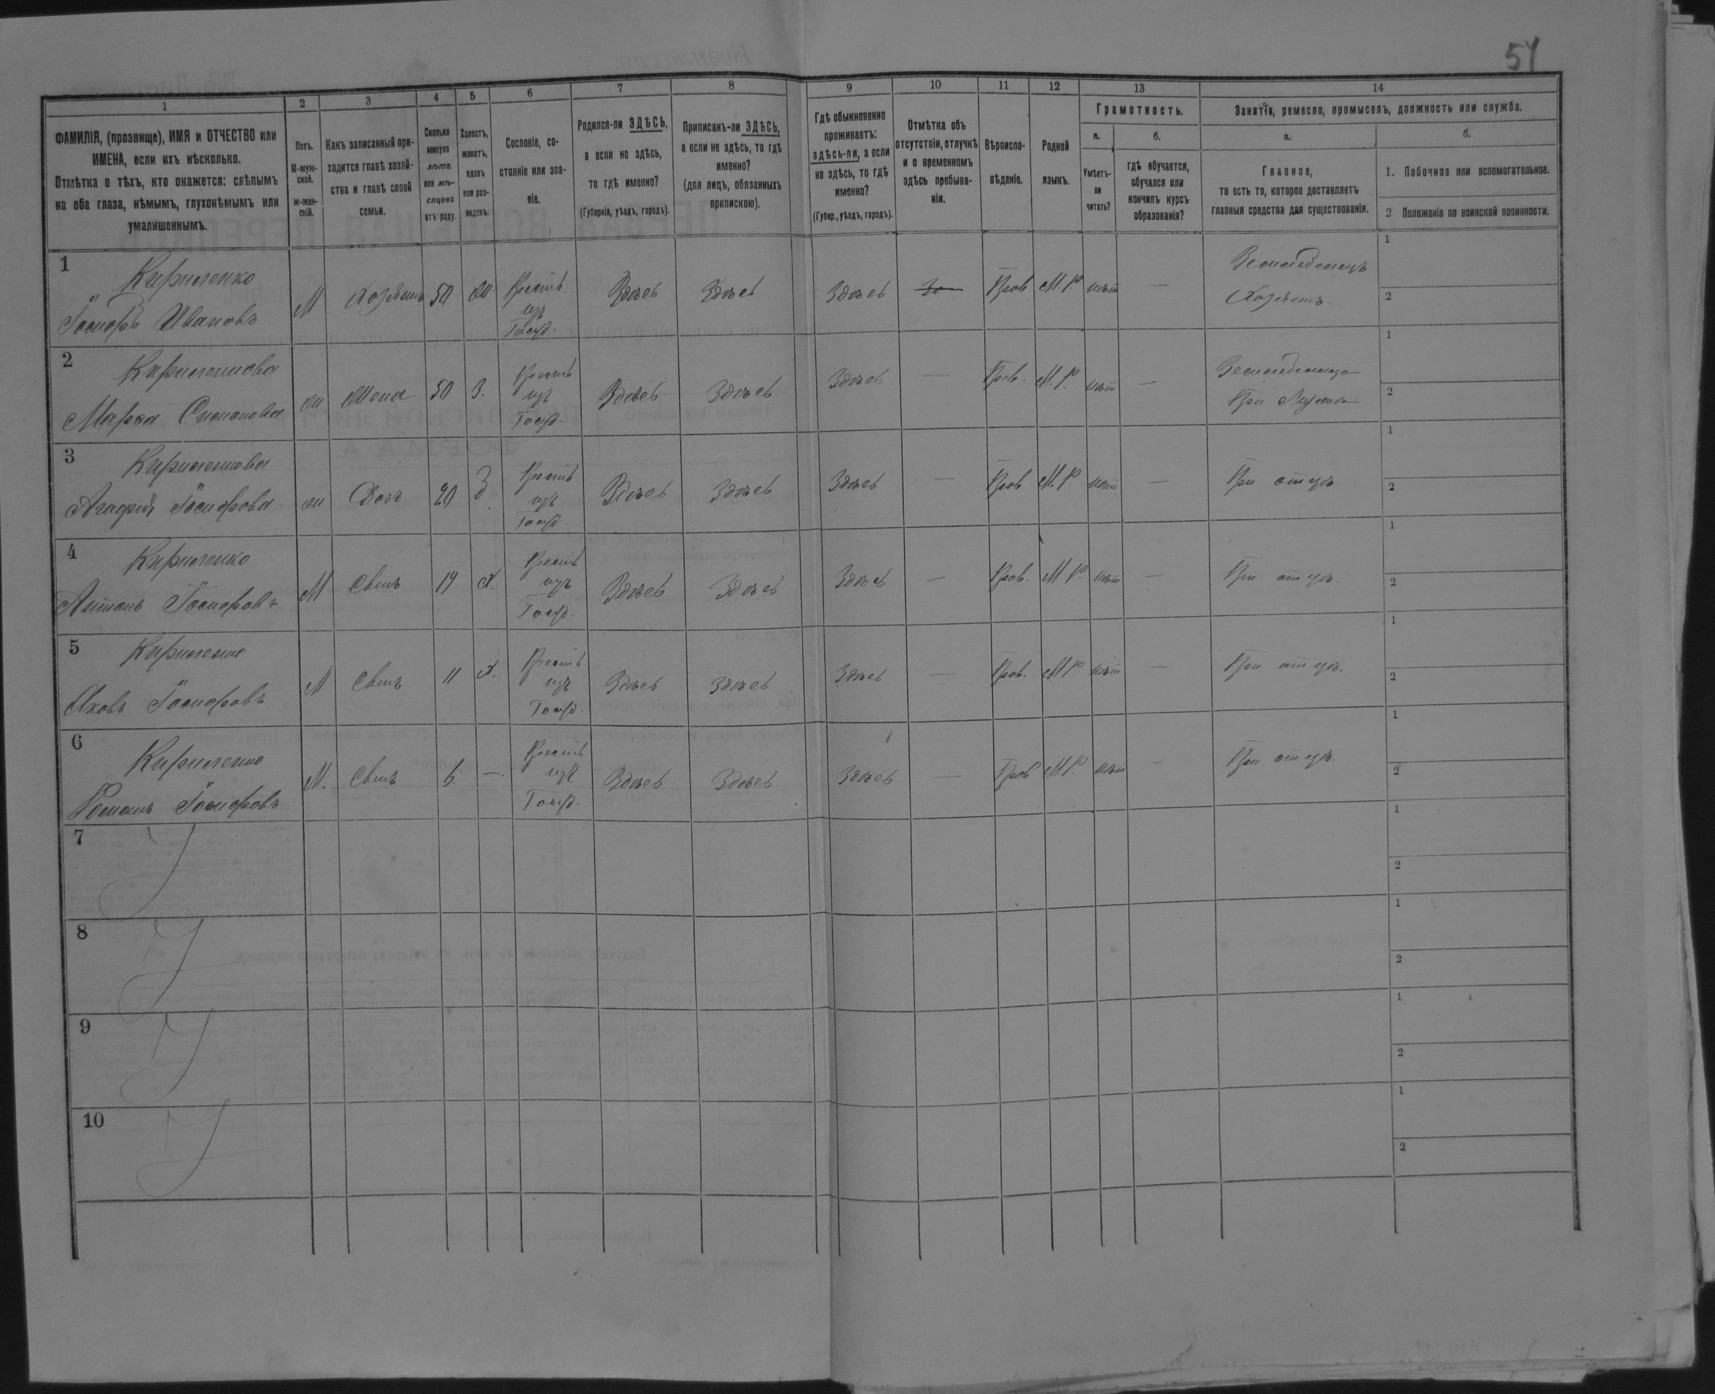 51
1 2 3 4 5 6 7 8 9 10 11 12 13 14
ФАМИЛІЯ, (прозвище), ИМЯ и ОТЧЕСТВО или
ИМЕНА, если ихъ нѣсколько.
Отмѣтка о тѣхъ, кто окажется: слѣпымъ
на оба глаза, нѣмымъ, глухонѣмымъ или
умалишеннымъ.
Полъ.
М-муж-
ской.
Ж-жен-
скій.
Какъ записанный при-
ходится главѣ хозяй-
ства и главѣ своей
семьи.
Сколько
минуло
лѣтъ
или мѣ-
сяцевъ
отъ роду.
Холостъ,
женатъ,
вдовъ
или раз-
веденъ.
Сословіе, со-
стояніе или зва-
ніе.
Родился-ли ЗДѢСЬ,
а если не здѣсь,
то гдѣ именно?
(Губернія, уѣздъ, городъ).
Приписанъ-ли ЗДѢСЬ,
а если не здѣсь, то гдѣ
именно?
(для лицъ, обязанныхъ
припискою).
Гдѣ обыкновенно
проживаетъ:
здѣсь-ли, а если
не здѣсь, то гдѣ
именно?
(Губер., уѣздъ, городъ).
Отмѣтка объ
отсутствіи, отлучкѣ
и о временномъ
здѣсь пребыва-
ніи.
Вѣроиспо-
вѣданіе.
Родной
языкъ.
Грамотность.
а.
Умѣетъ-
ли
читать?
б.
гдѣ обучается,
обучался или
кончилъ курсъ
образованія?
Занятія, ремесло, промыселъ, должность или служба.
а.
Главное,
то есть то, которое доставляетъ
главныя средства для существованія.
б.
1. Побочное или вспомогательное.
2 Положеніе по воинской повинности.
1
Кириленко
Іосифъ Ивановъ
М
Хозяинъ
50
Ж
Крестъ
изъ
Госуд.
Здѣсь
Здѣсь
Здѣсь
Прав
М.Р
нѣт
—
Земледелецъ
Хозяинъ.
1
2
2
Кириленкова
Марѳа
Ж
Жена
50
З.
Крестъ
изъ
Госуд.
Здѣсь
Здѣсь
Здѣсь
—
Прав.
М.Р.
нѣт
—
При
1
2
3
Кириленкова
Агафія Іосифова
Ж
Дочь
20
Крестъ
изъ
Госуд.
Здѣсь
Здѣсь
Здѣсь
—
Прав
М.Р
нѣт
—
При отцѣ
1
2
4
Кириленко
Антонъ Іосифовъ
М
Сынъ
Х.
Крестъ
изъ
Госуд.
Здѣсь
Здѣсь
Здѣсь
—
Прав.
М.Р.
нѣт
—
При отцѣ.
1
2
5
Кириленко
Яковъ Іосифовъ
М
Сынъ
11
Х.
Крестъ
изъ
Госуд.
Здѣсь
Здѣсь
Здѣсь
—
Прав.
М.Р
нѣт
—
При отцѣ.
1
2
6
Кириленко
Романъ Іосифовъ
М.
Сынъ
6.
—
Крестъ
изъ
Госуд.
Здѣсь
Здѣсь
Здѣсь
—
Прав
М.Р.
нѣт
—
При отцѣ.
1
2
7
1
2
8
1
2
9
1
2
10
1
2